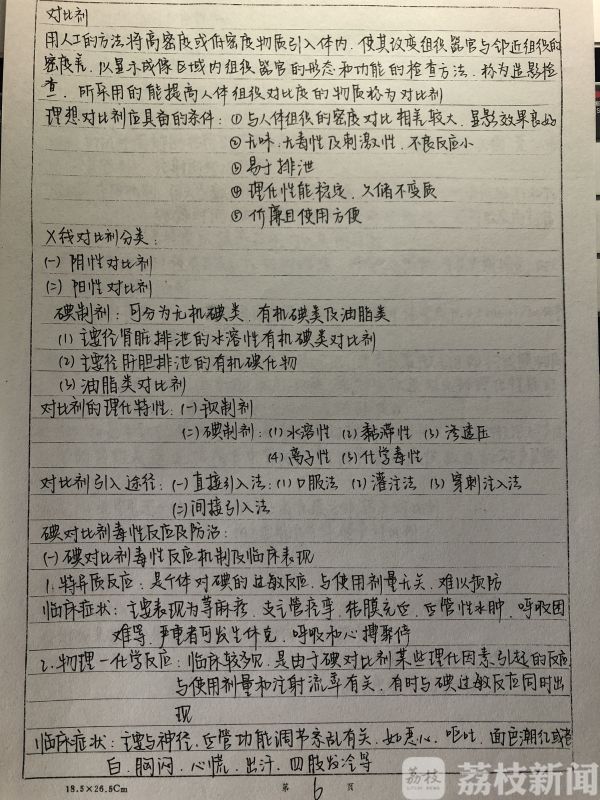 对比剂
用人工的方法将高密度或低密度物质引入体内，使其改变组织器官与邻近组织的
密度差，以显示成像区域内组织器官的形态和功能的检查方法，称为造影检
查，所采用的能提高人体组织对比度的物质称为对比剂
理想对比剂应具备的条件：①与人体组织的密度对比相差较大，显影效果良好
②无味、无毒性及刺激性，不良反应小
③易于排泄
④理化性能稳定，久储不变质
⑤价廉且使用方便
X线对比剂分类：
(一)阴性对比剂
(二)阳性对比剂
碘制剂：可分为无机碘类，有机碘类及油脂类
(1)主要经肾脏排泄的水溶性有机碘类对比剂
(2)主要经肝胆排泄的有机碘化物
(3)油脂类对比剂
对比剂的理化特性：(一)钡制剂
(二)碘制剂：(1)水溶性 (2)黏滞性 (3)渗透压
(4)离子性 (5)化学毒性
对比剂引入途径：(一)直接引入法：(1)口服法 (2)灌注法 (3)穿刺注入法
(二)间接引入法
碘对比剂毒性反应及防治：
(一)碘对比剂毒性反应机制及临床表现
1.特异质反应：是个体对碘的过敏反应，与使用剂量无关，难以预防
临床症状：主要表现为荨麻疹，支气管痉挛，结膜充血，血管性水肿，呼吸困
难等，严重者可发生休克，呼吸和心搏骤停
2.物理一化学反应：临床较多见，是由于碘对比剂某些理化因素引起的反应
与使用剂量和注射流率有关，有时与碘过敏反应同时出
现
临床症状：主要与神经，血管功能调节紊乱有关，如恶心，呕吐，面色潮红或苍
白，胸闷，心慌，出汗，四肢发冷等
18.5×26.5Cm 第 6 页
荔枝 荔枝新闻